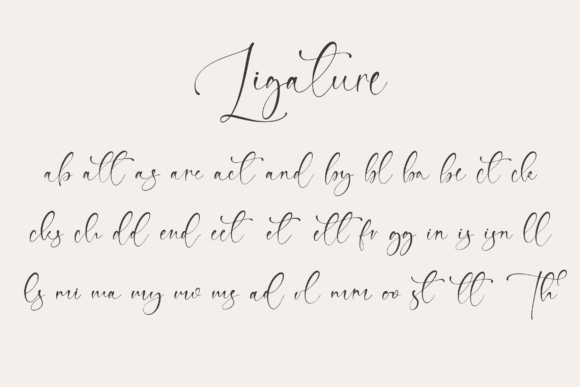 Ligature
ab att as are act and by bl ba be ct ck
cks ch dd end ect et ett fr gg in is isn ll
ls mi ma my mo ms ad ol mm oo st tt Th